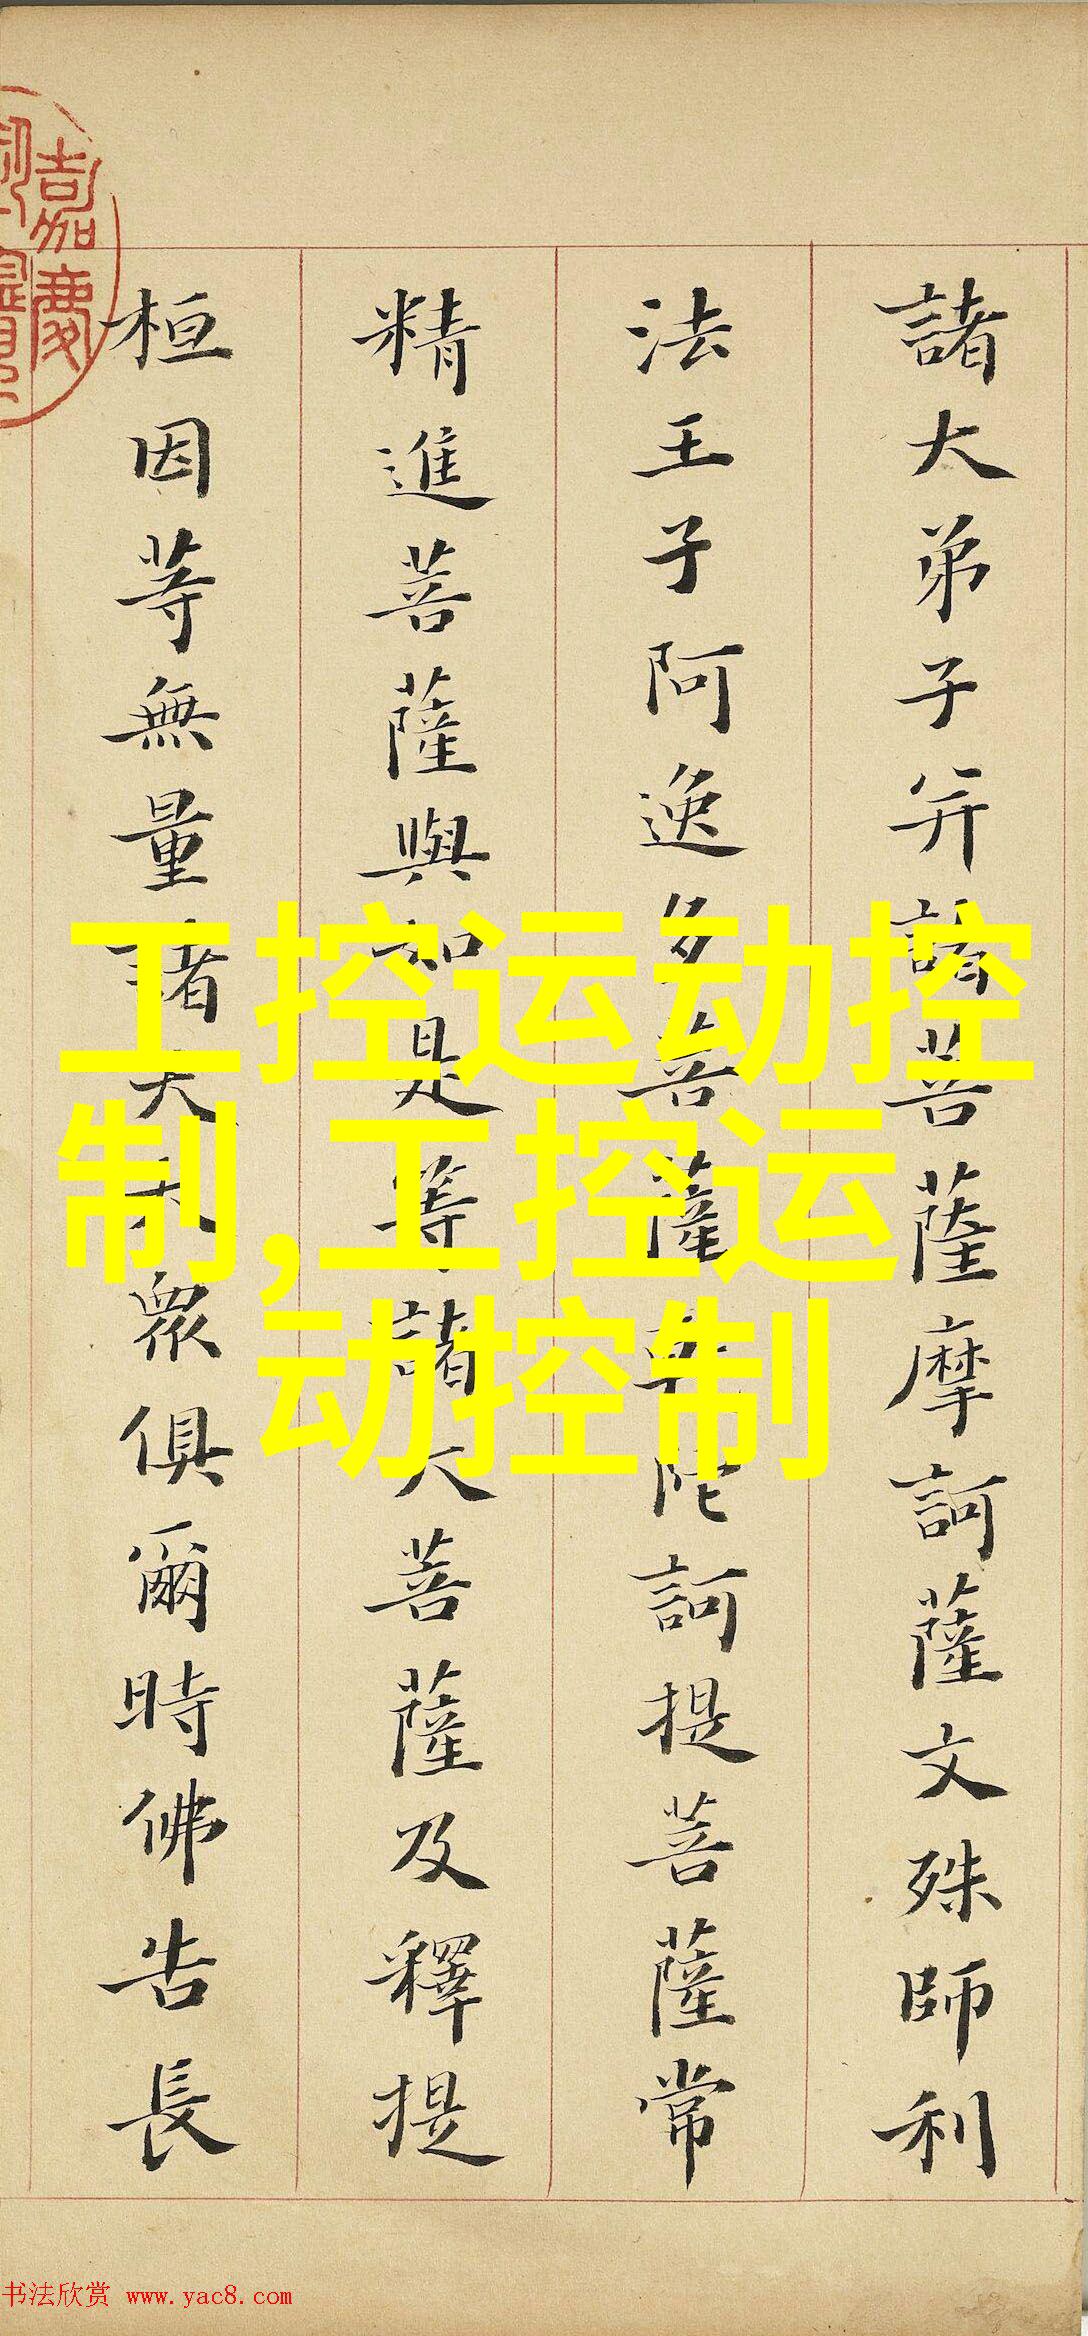 諸大弟子并諸菩薩摩訶薩文殊師利
法王子阿逸多菩薩乾陀訶提菩薩常
精進菩薩與如是等諸大菩薩及釋提
桓因等無量諸天大眾俱爾時佛告長
嘉慶
工控运动控
制,工控运
动控制
书法欣赏 www.yac8.com